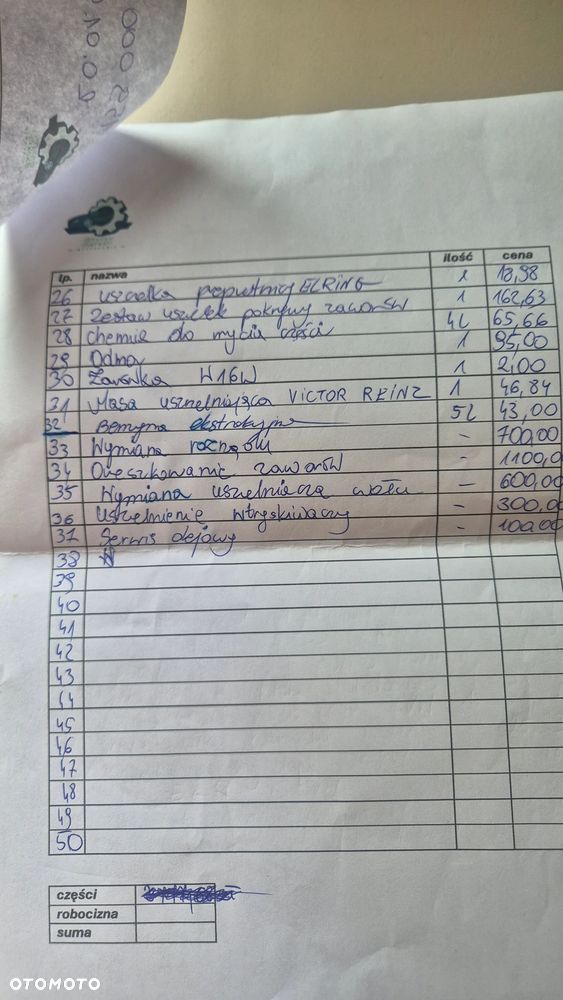 lp. nazwa ilość cena
26 uszczelka przepustnicy ELRING 1 18,98
27 Zestaw uszczelek pokrywy zaworów 1 162,63
28 chemia do mycia części 4L 65,66
29 Odma 1 95,00
30 Żarówka W16W 1 2,00
31 Masa uszczelniająca VICTOR REINZ 1 46,84
32 Benzyna ekstrakcyjna 5L 43,00
33 Wymiana rozrządu - 700,00
34 Doreszkowanie zaworów - 1100,0
35 Wymiana uszczelniacza wału - 600,00
36 Uszczelnienie wtryskiwaczy - 300,0
37 Serwis olejowy - 100,00
38
39
40
41
42
43
44
45
46
47
48
49
50
części
robocizna
suma
OTOMOTO